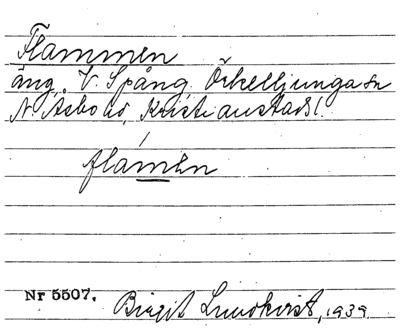 Flammen
äng, V. Spång, Örkelljunga sn
N. Åsbo hd, Kristianstads l.
flamen
Nr 5507.
Birgit Lundkvist, 1939.